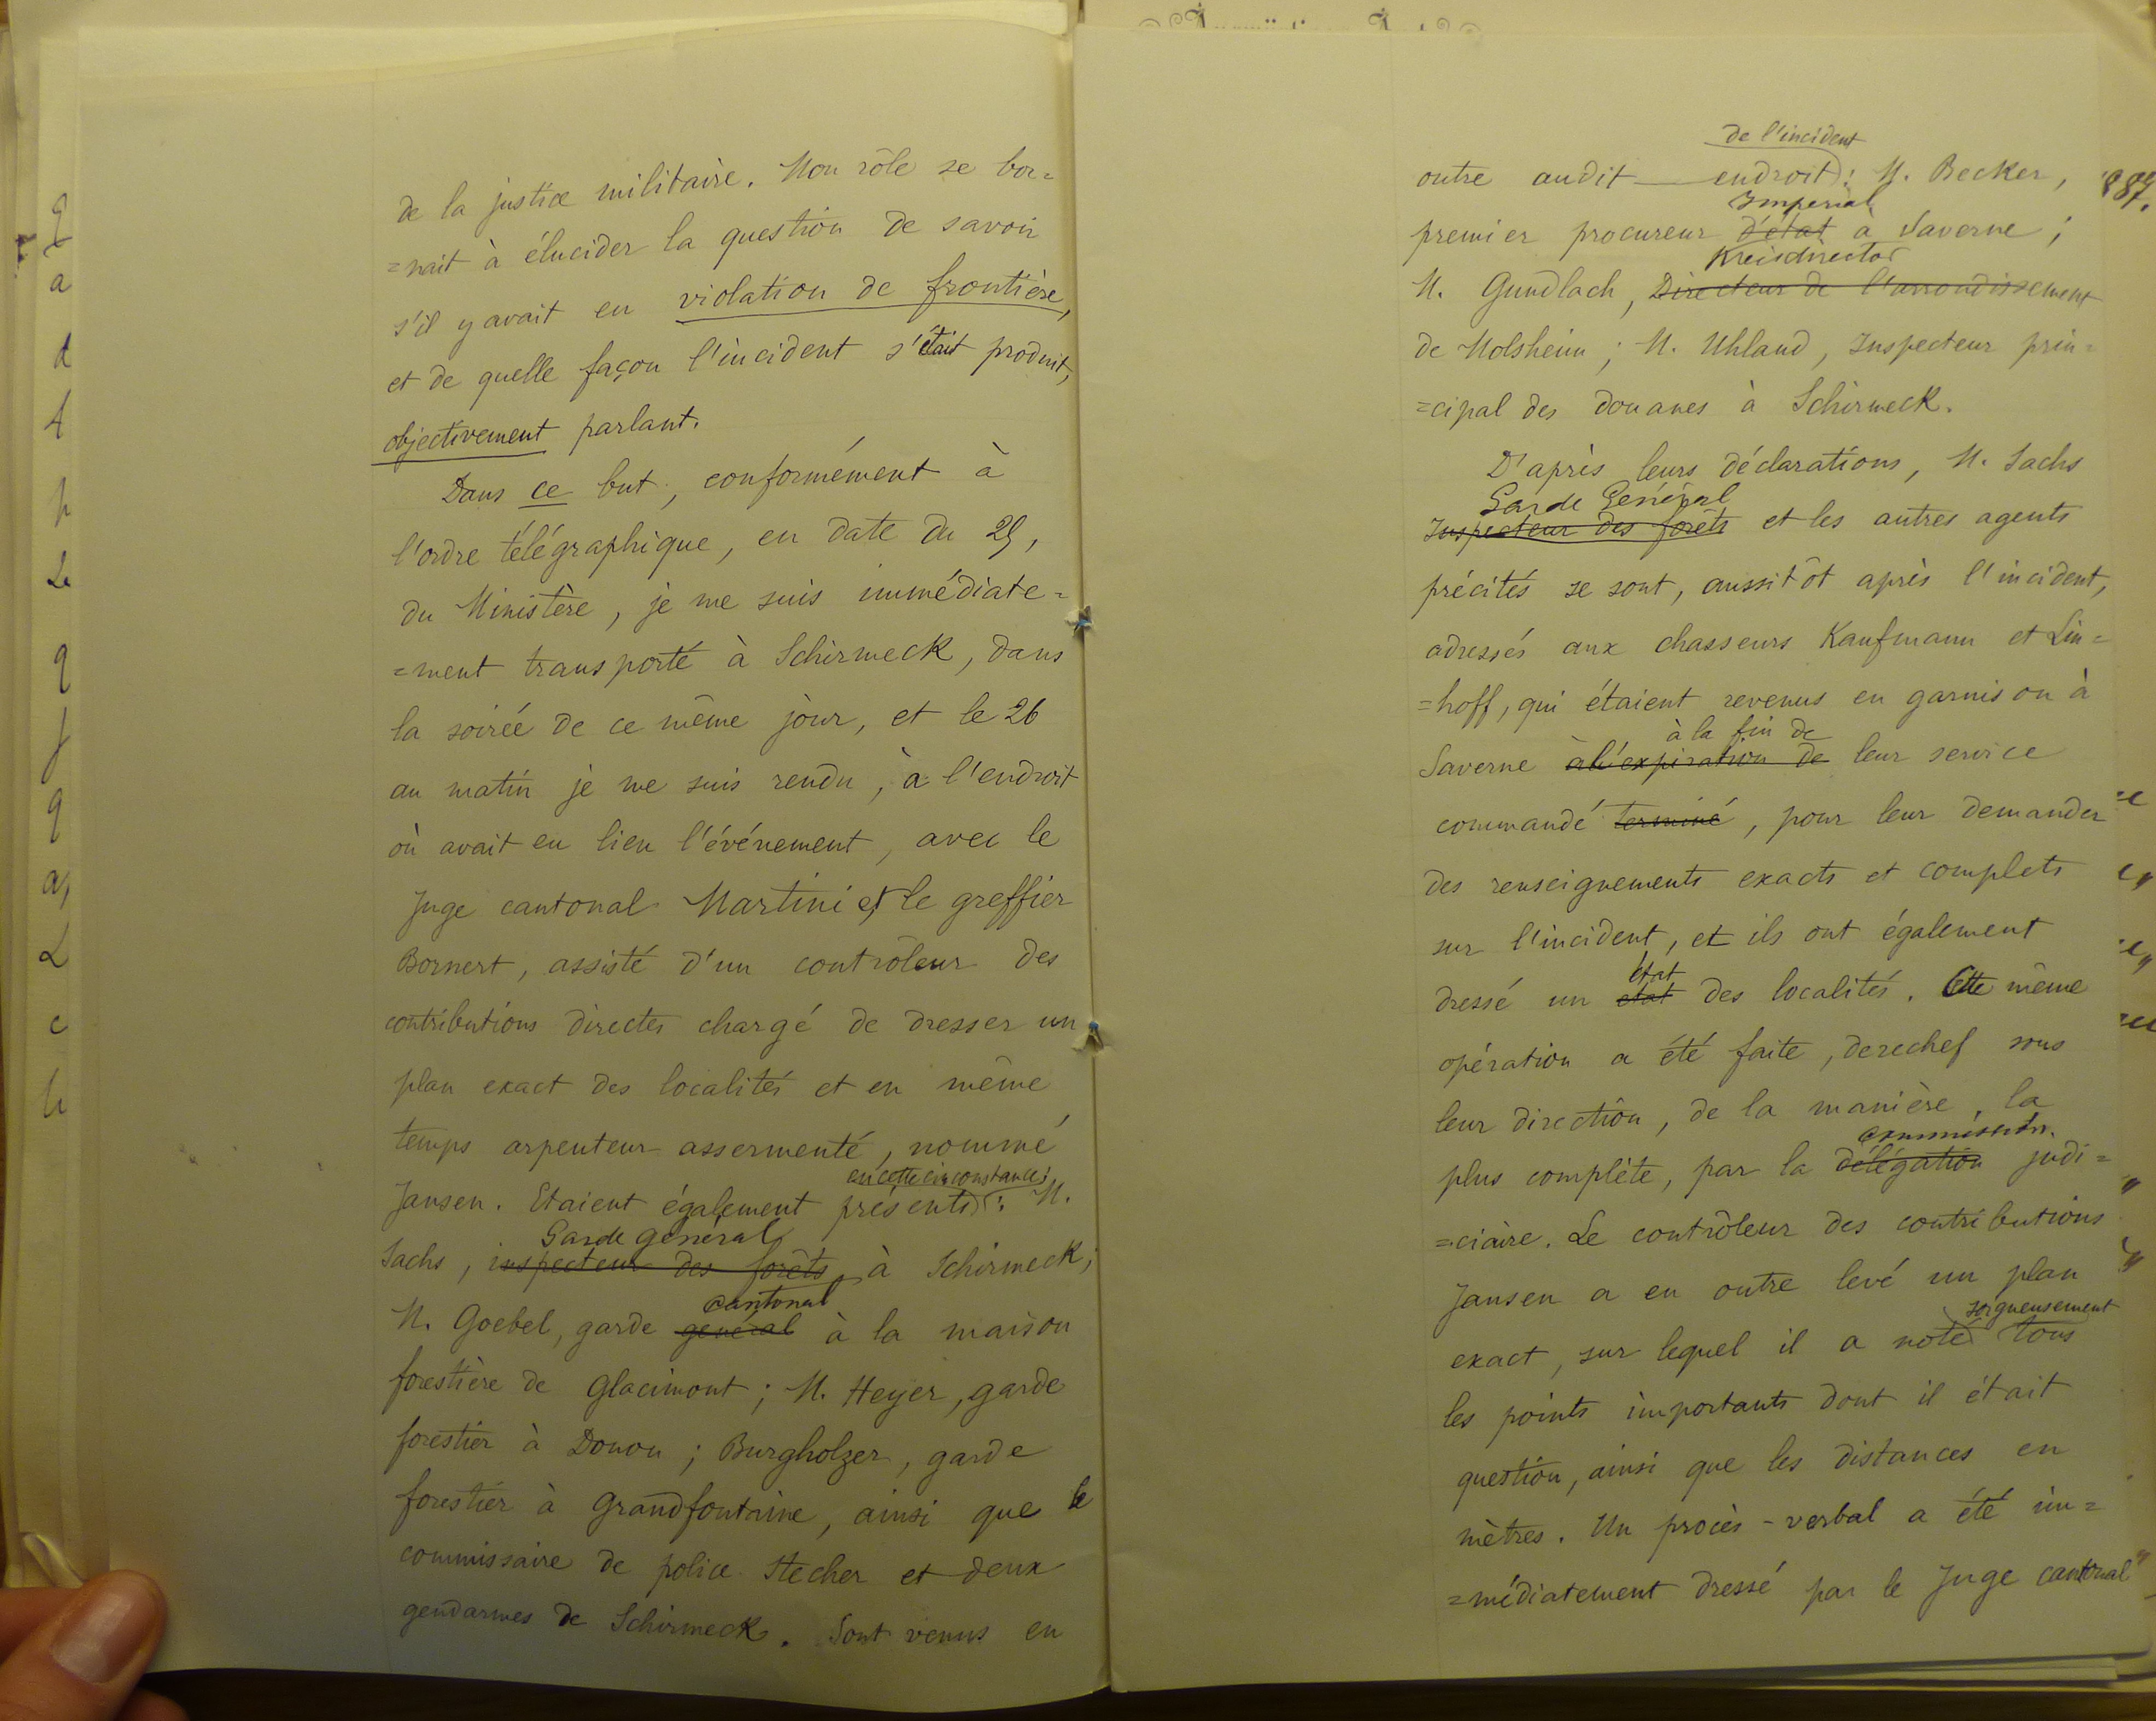 de la justice militaire. Mon rôle se bor=
=nait à élucider la question de savoir
s'il y avait eu violation de frontière,
et de quelle façon l'incident s'était produit,
objectivement parlant.
Dans ce but, conformément à
l'ordre télégraphique, en date du 25,
du Ministère, je me suis immédiate=
=ment transporté à Schirmeck, dans
la soirée de ce même jour, et le 26
au matin je me suis rendu, à l'endroit
où avait eu lieu l'événement, avec le
Juge cantonal Martini et le greffier
Bornert, assisté d'un contrôleur des
contributions directes chargé de dresser un
plan exact des localités et en même
temps arpenteur assermenté, nommé
en cette circonstance:
Jansen. Etaient également présents: M.
Garde général
Sachs, inspecteur des forêts, à Schirmeck;
cantonal
M. Goebel, garde général à la maison
forestière de Glacimont; M. Heyer, garde
forestier à Donon; Burgholzer, garde
forestier à Grandfontaine, ainsi que le
commissaire de police Stecher et deux
gendarmes de Schirmeck. Sont venus en
de l'incident
outre audit endroit: M. Becker,
Impérial
premier procureur d'état à Saverne;
Kreisdirector
M. Gundlach, Directeur de l'arrondissement
de Molsheim; M. Uhland, Inspecteur prin=
=cipal des douanes à Schirmeck.
D'après leurs déclarations, M. Sachs
Garde Général
Inspecteur des forêts et les autres agents
précités se sont, aussitôt après l'incident,
adressés aux chasseurs Kaufmann et Lin=
=hoff, qui étaient revenus en garnison à
à la fin de
Saverne à l'expiration de leur service
commandé terminé, pour leur demander
des renseignements exacts et complets
sur l'incident, et ils ont également
état
dressé un etat des localités. Cette même
opération a été faite, derechef sous
leur direction, de la manière, la
commission
plus complète, par la délégation judi=
=ciaire. Le contrôleur des contributions
Jansen a en outre levé un plan
soigneusement
exact, sur lequel il a noté tous
les points importants dont il était
question, ainsi que les distances en
mètres. Un procès-verbal a été im=
=médiatement dressé par le Juge cantonal